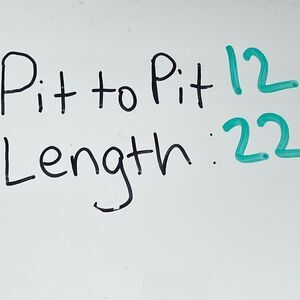 Pit to Pit 12
Length: 22